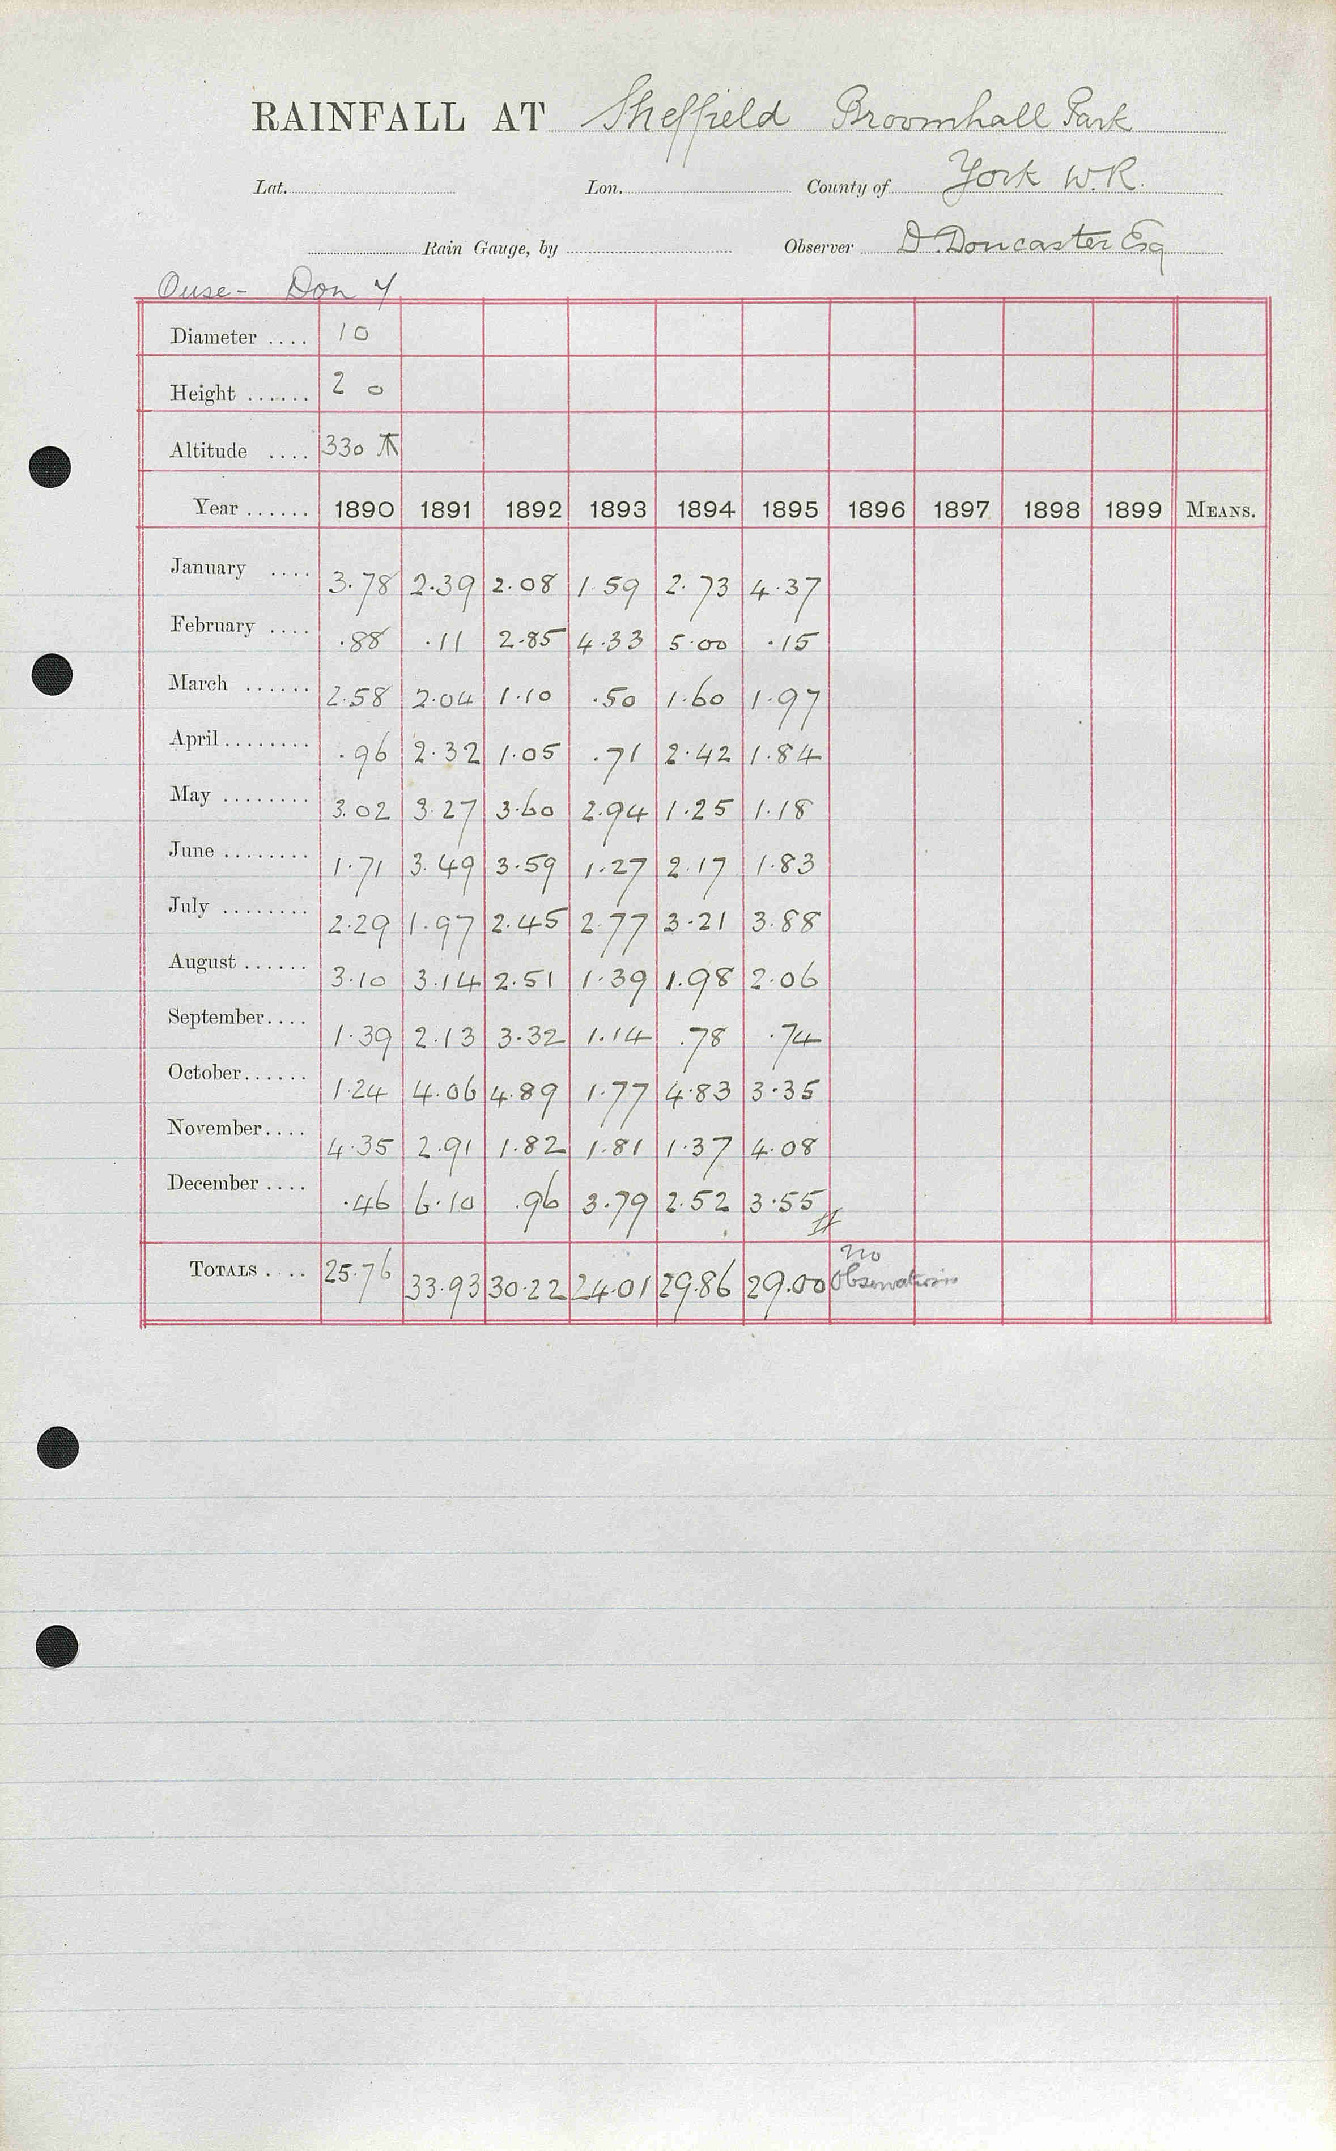 RAINFALL AT Sheffield Broomhall Park
Lat. Lon. County of York W.R.
Rain Gauge, by Observer D. Doncaster Esq
Ouse - Don 4
Diameter .... 10
Height ...... 2 0
Altitude .... 330
Year ...... 1890 1891 1892 1893 1894 1895 1896 1897 1898 1899 MEANS.
January .... 3.78 2.39 2.08 1.59 2.73 4.37
February .... .88 .11 2.85 4.33 5.00 .15
March ...... 2.58 2.04 1.10 .50 1.60 1.97
April ........ .96 2.32 1.05 .71 2.42 1.84
May ........ 3.02 3.27 3.60 2.94 1.25 1.18
June ........ 1.71 3.49 3.59 1.27 2.17 1.83
July ........ 2.29 1.97 2.45 2.77 3.21 3.88
August ...... 3.10 3.14 2.51 1.39 1.98 2.06
September.... 1.39 2.13 3.32 1.14 .78 .74
October...... 1.24 4.06 4.89 1.77 4.83 3.35
November.... 4.35 2.91 1.82 1.81 1.37 4.08
December .... .46 6.10 .96 3.79 2.52 3.55
TOTALS .... 25.76 33.93 30.22 24.01 29.86 29.00 no
Observations